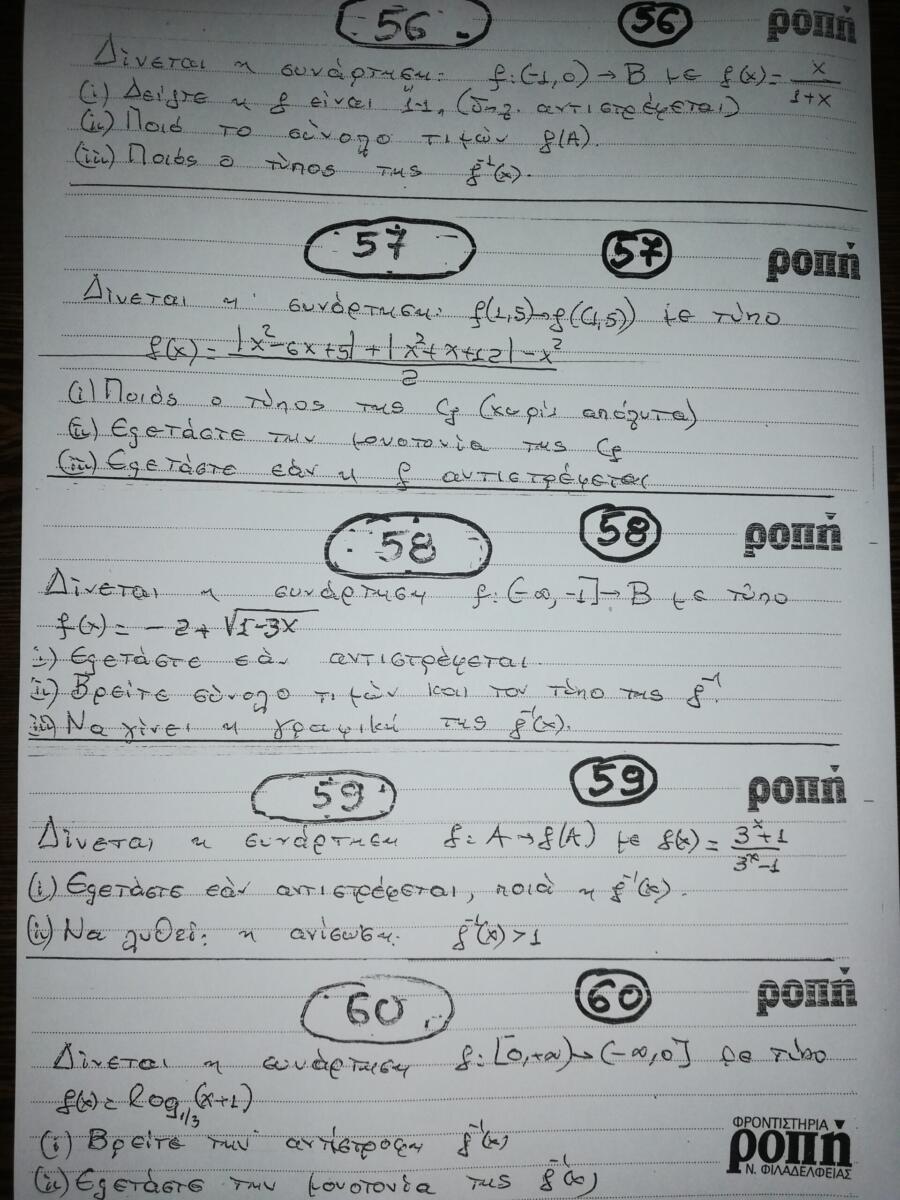 56 56 ροπή
Δίνεται η συνάρτηση: f:(-1,0)→B με f(x)= x/(1+x)
(i) Δείξτε η f είναι "1-1" (δηλ. αντιστρέφεται)
(ii) Ποιό το σύνολο τιμών f(A).
(iii) Ποιός ο τύπος της f⁻¹(x).
57 57 ροπή
Δίνεται η συνάρτηση: f(1,5)→f((1,5)) με τύπο
f(x) = (|x²-6x+5|+|x²+x+12|-x²)/2
(i) Ποιός ο τύπος της Cf (χωρίς απόλυτα)
(ii) Εξετάστε την μονοτονία της Cf
(iii) Εξετάστε εάν η f αντιστρέφεται
58 58 ροπή
Δίνεται η συνάρτηση f:(-∞,-1]→B με τύπο
f(x) = -2+√(1-3x)
i) Εξετάστε εάν αντιστρέφεται.
ii) Βρείτε σύνολο τιμών και τον τύπο της f⁻¹.
iii) Να γίνει η γραφική της f⁻¹(x).
59 59 ροπή
Δίνεται η συνάρτηση f: A→f(A) με f(x) = (3ˣ+1)/(3ˣ-1)
(i) Εξετάστε εάν αντιστρέφεται, ποιά η f⁻¹(x).
(ii) Να λυθεί: η ανίσωση: f⁻¹(x)>1
60 60 ροπή
Δίνεται η συνάρτηση f:[0,+∞)→(-∞,0] με τύπο
f(x)= log₁/₃(x+1)
(i) Βρείτε την αντίστροφη f⁻¹(x)
(ii) Εξετάστε την μονοτονία της f⁻¹(x)
ΦΡΟΝΤΙΣΤΗΡΙΑ
ροπή
Ν. ΦΙΛΑΔΕΛΦΕΙΑΣ